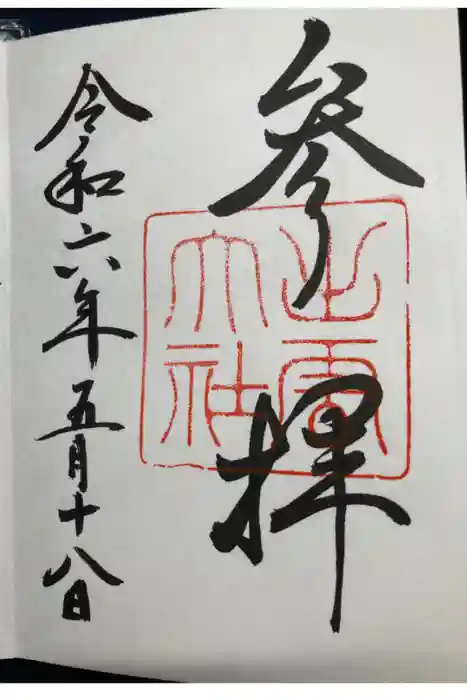 参拝
出雲
大社
令和六年五月十八日